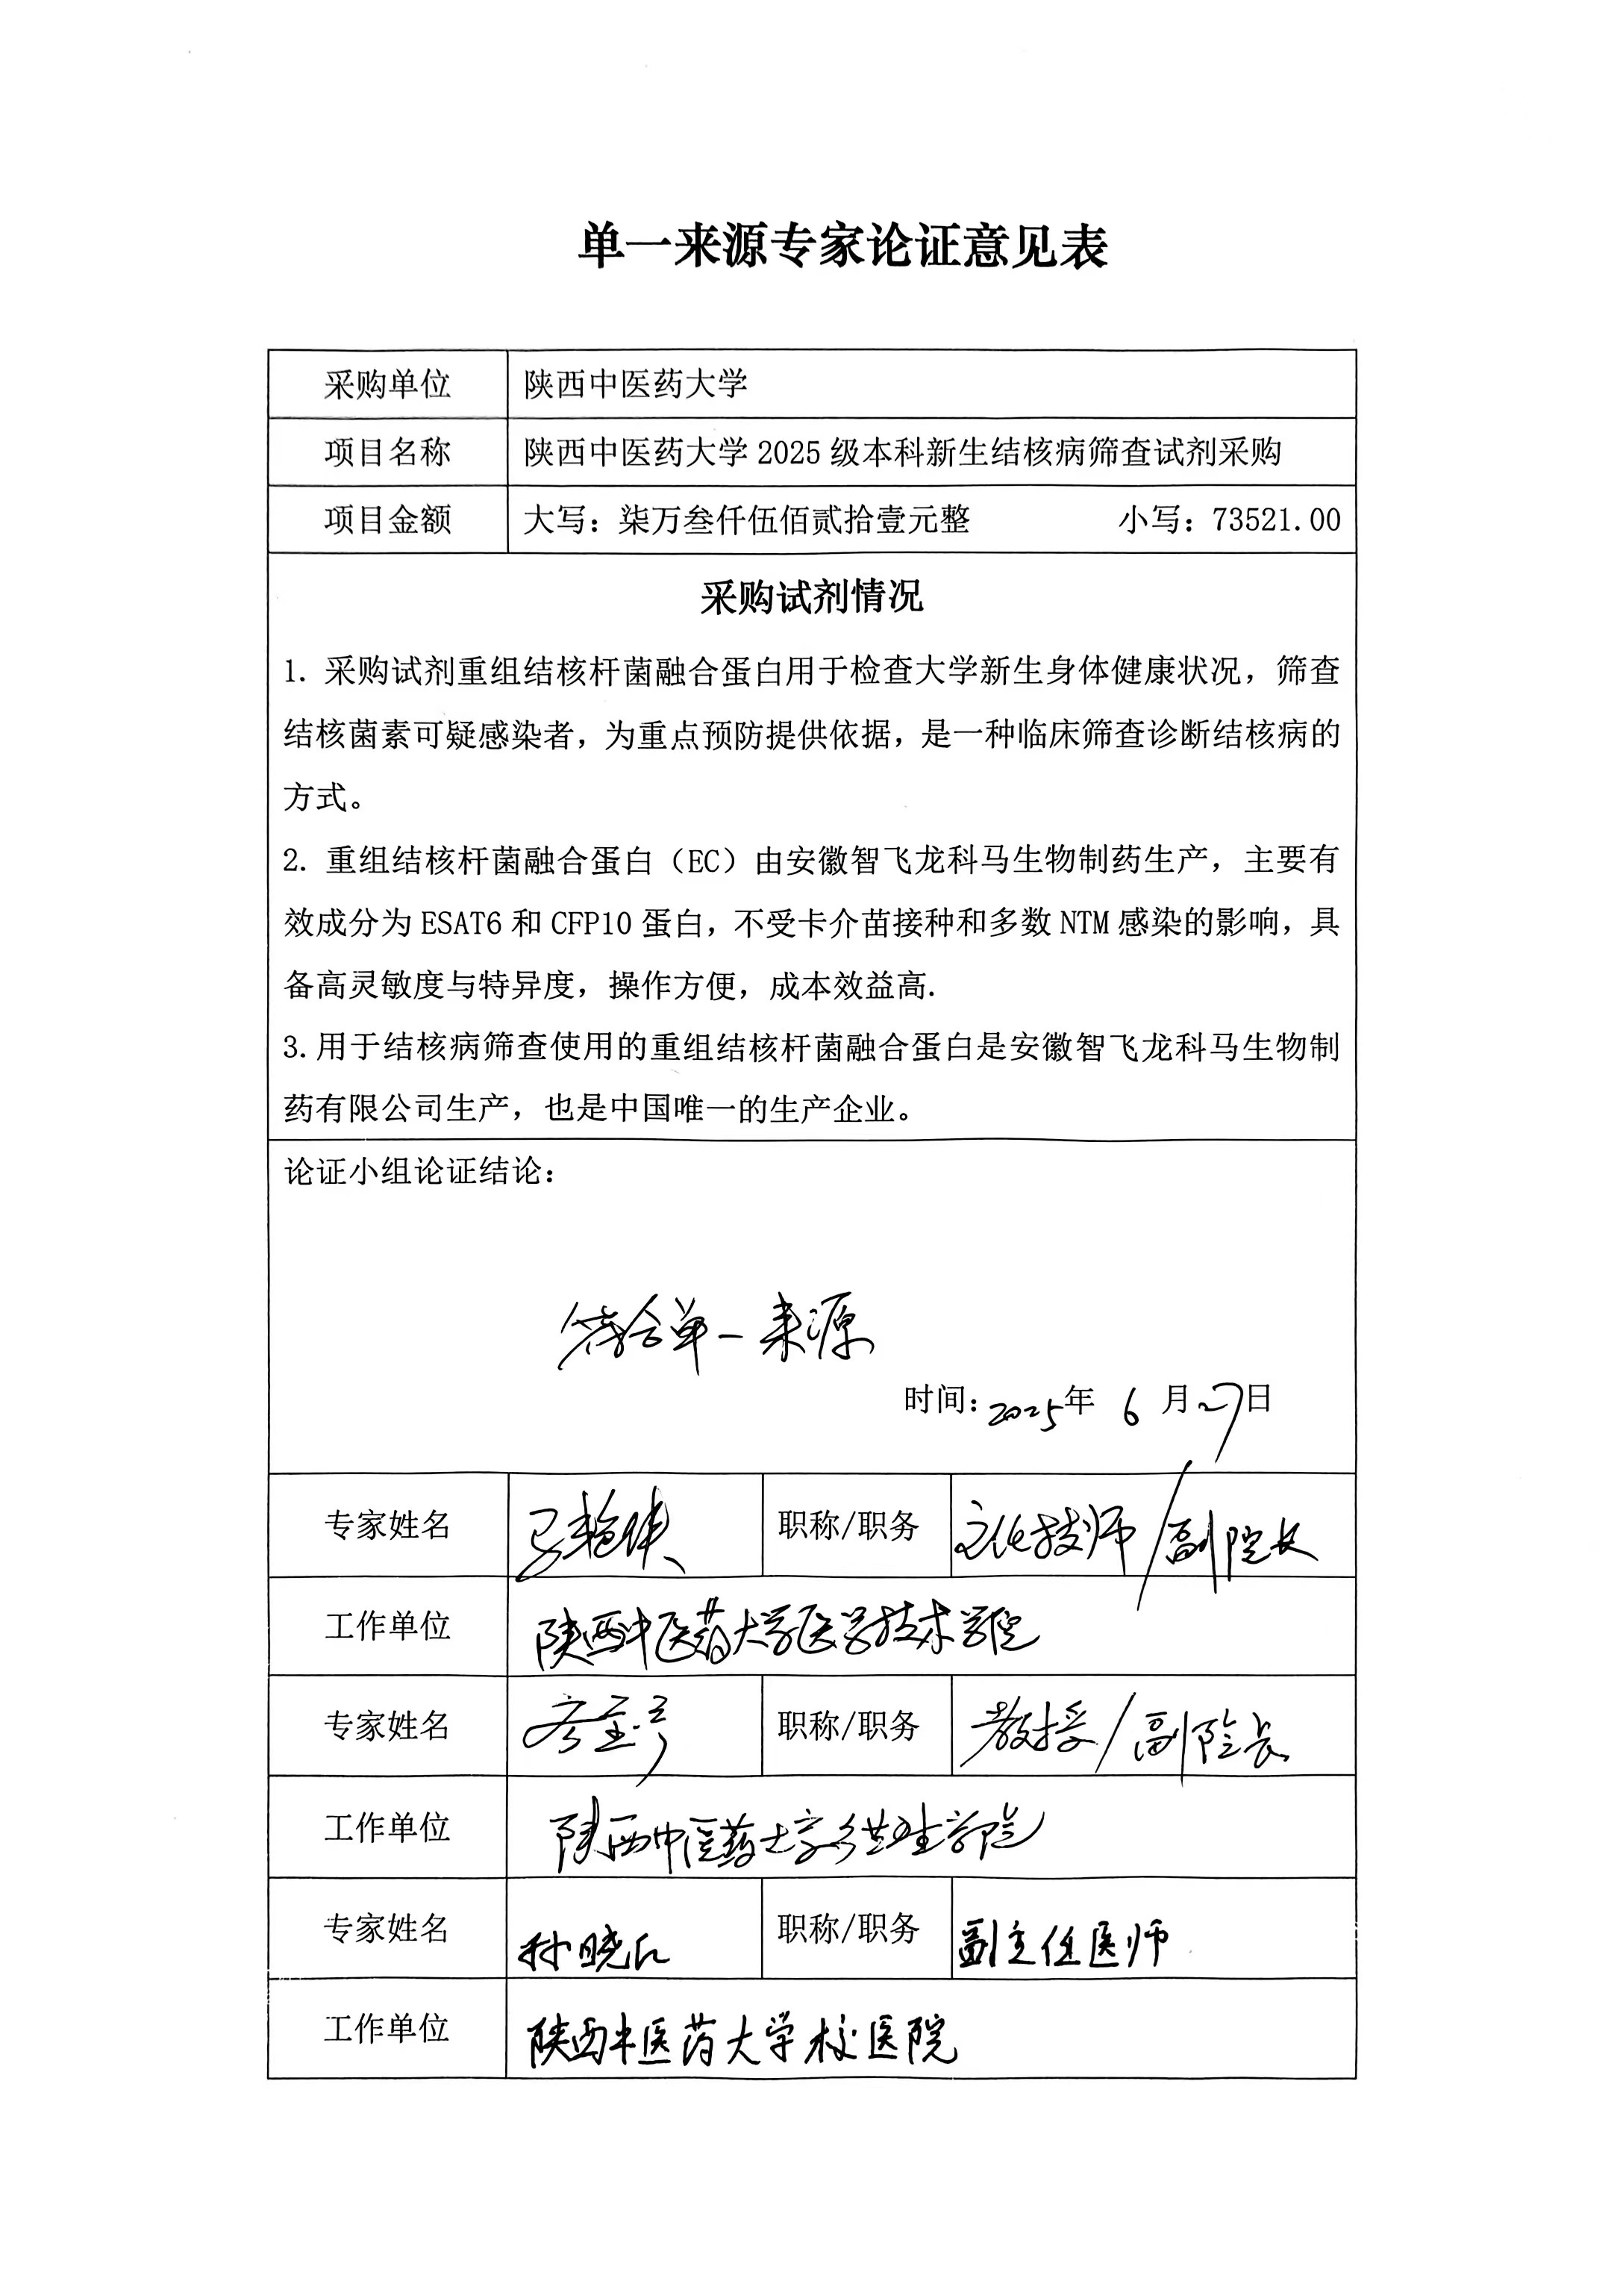 单一来源专家论证意见表
采购单位 陕西中医药大学
项目名称 陕西中医药大学 2025 级本科新生结核病筛查试剂采购
项目金额 大写：柒万叁仟伍佰贰拾壹元整 小写：73521.00
采购试剂情况
1. 采购试剂重组结核杆菌融合蛋白用于检查大学新生身体健康状况，筛查
结核菌素可疑感染者，为重点预防提供依据，是一种临床筛查诊断结核病的
方式。
2. 重组结核杆菌融合蛋白（EC）由安徽智飞龙科马生物制药生产，主要有
效成分为 ESAT6 和 CFP10 蛋白，不受卡介苗接种和多数 NTM 感染的影响，具
备高灵敏度与特异度，操作方便，成本效益高.
3.用于结核病筛查使用的重组结核杆菌融合蛋白是安徽智飞龙科马生物制
药有限公司生产，也是中国唯一的生产企业。
论证小组论证结论：
符合单一来源
时间：2025年 6 月27日
专家姓名 职称/职务 主任技师/副院长
工作单位 陕西中医药大学医学技术学院
专家姓名 职称/职务 教授/副院长
工作单位 陕西中医药大学公共卫生学院
专家姓名 职称/职务 副主任医师
工作单位 陕西中医药大学校医院